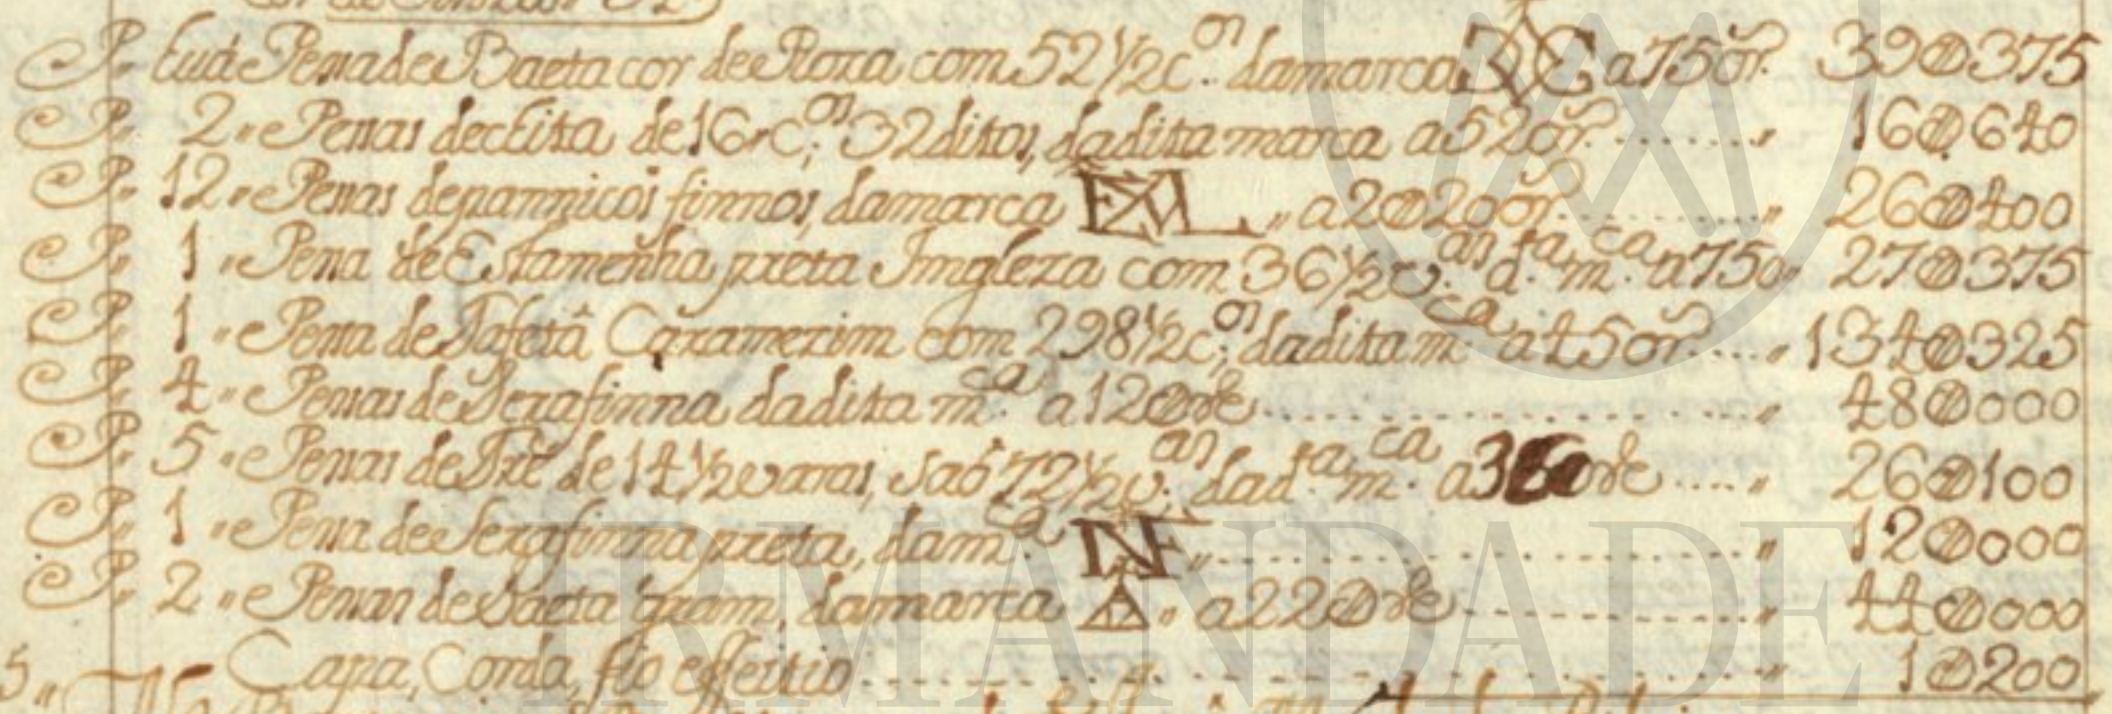 P. Huã Pessa de Baeta cor de Roza com 52 1/2 c.os da marca a 750 r. 39@375
P. 2 " Pessas de chita de 16 c.os 32 ditos, da dita marca a 520 r. ....... " 16@640
P. 12 " Pessas de pannicos finnos, da marca " a 2@200 r. ....... " 26@400
P. 1 " Pessa de Estamenha preta Imgleza com 36 1/2 c.os d.ta m.ca a 750 " 27@375
P. 1 " Pessa de Tafetâ Caramezim com 298 1/2 c.os da dita m.ca a 450 r. .... " 134@325
P. 4 " Pessas de Serafinna da dita m.ca a 12@ ....... " 48@000
P. 5 " Pessas de de 14 1/2 varas, saõ 72 1/2 v.as da d.ta m.ca a ..... " 26@100
P. 1 " Pessa de Serafinna preta, da m.ca NF " ....... " 12@000
P. 2 " Pessas de Baeta gram, da marca " a 22@ ....... " 44@000
Capa, Corda, fio e ffeitio ....... " 1@200
5 "
IRMANDADE